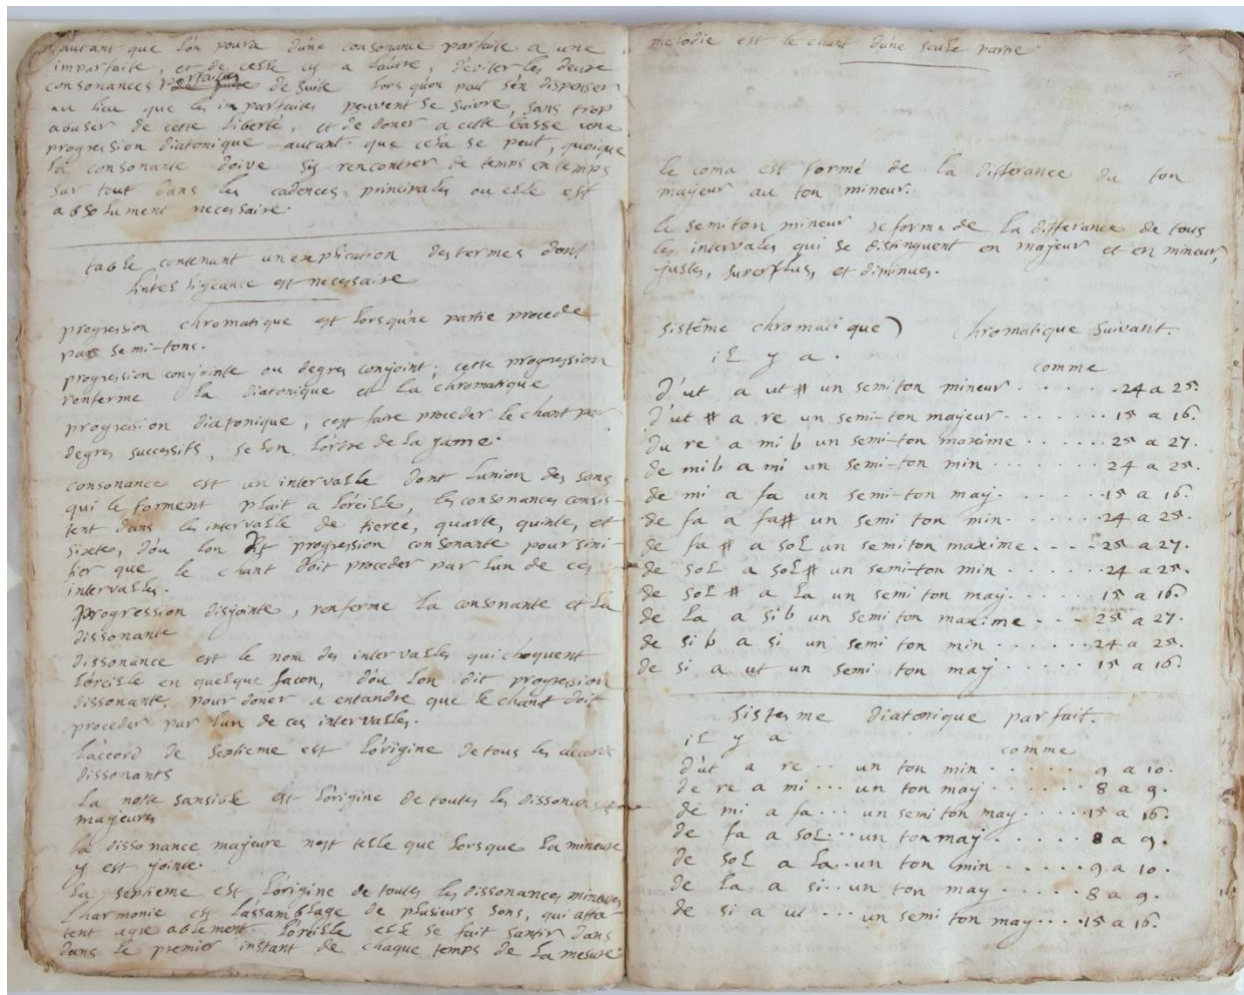 d'autant que l'on poura d'une consonance parfaite a une
imparfaite, et de celle cy a l'autre, d'eviter les deux
consonances parfaites de suite lors qu'on peut s'en dispenser
au lieu que les imparfaites peuvent se suivre, sans trop
abuser de cette liberté, et de doner a cette basse une
progression diatonique autant que cela se peut, quoique
la consonante doive s'y rencontrer de temps en temps
sur tout dans les cadences principales ou elle est
absolument necessaire.
table contenant un explication des termes dont
l'inteligeance est necessaire
progression chromatique est lorsqu'une partie procede
par semi-tons.
progression conjointe ou degres conjoint; cette progression
renferme la diatonique et la chromatique
progression diatonique, c'est faire proceder le chant par
degres successifs, selon l'ordre de la game.
consonance est un intervalle dont l'union des sons
qui le forment plait a l'oreille, les consonances consis-
tent dans les intervalle de tierce, quarte, quinte, et
sixte, d'ou l'on dit progression consonante pour sini-
fier que le chant doit proceder par l'un de ces
intervalles.
Progression disjointe, renferme la consonante et la
dissonante
dissonance est le nom des intervalles qui choquent
l'oreille en quelque façon, d'ou l'on dit progression
dissonante, pour doner a entandre que le chant doit
proceder par l'un de ces intervalles.
L'accord de septieme est l'origine de tous les accords
dissonants
La notte sansible est l'origine de toutes les dissonances
majeures
la dissonance majeure n'est telle que lorsque la mineure
y est jointe.
La septieme est l'origine de toutes les dissonances mineures
L'harmonie est l'assamblage de plusieurs sons, qui affe-
tent agreablement l'oreille elle se fait santir dans
dans le premier instant de chaque temps de la mesure
melodie est le chant d'une seule partie
le coma est formé de la differance du ton
majeur au ton mineur.
le semiton mineur se forme de la differance de tous
les intervales qui se distinguent en majeur et en mineur,
justes, superflus, et diminues.
Sistême chromatique) chromatique suivant.
iL y a .
comme
D'ut a ut # un semiton mineur . . . . . 24 a 25.
d'ut # a re un semi-ton majeur . . . . . 15 a 16.
du re a mi b un semi-ton maxime . . . . . 25 a 27.
de mi b a mi un semi-ton min . . . . . 24 a 25.
de mi a fa un semi-ton maj. . . . . . 15 a 16.
de fa a fa# un semi ton min. . . . . . 24 a 25.
de fa # a soL un semiton maxime . . . . 25 a 27.
de soL a soL # un semi-ton min . . . . . 24 a 25.
de soL # a La un semi ton maj. . . . . . 15 a 16.
de La a si b un semi ton maxime . . . 25 a 27.
de si b a si un semi ton min . . . . . 24 a 25.
de si a ut un semi ton maj . . . . . 15 a 16.
Sisteme diatonique parfait.
iL y a
comme
d'ut a re . . un ton min . . . . . 9 a 10.
de re a mi . . . un ton maj . . . . . 8 a 9.
de mi a fa . . . un semi ton maj . . . . 15 a 16.
de fa a soL . . . un ton maj . . . . . 8 a 9.
de soL a La . . un ton min . . . . . 9 a 10.
de La a si . . un ton maj . . . . . 8 a 9.
de si a ut . . . un semi ton maj . . . . 15 a 16.